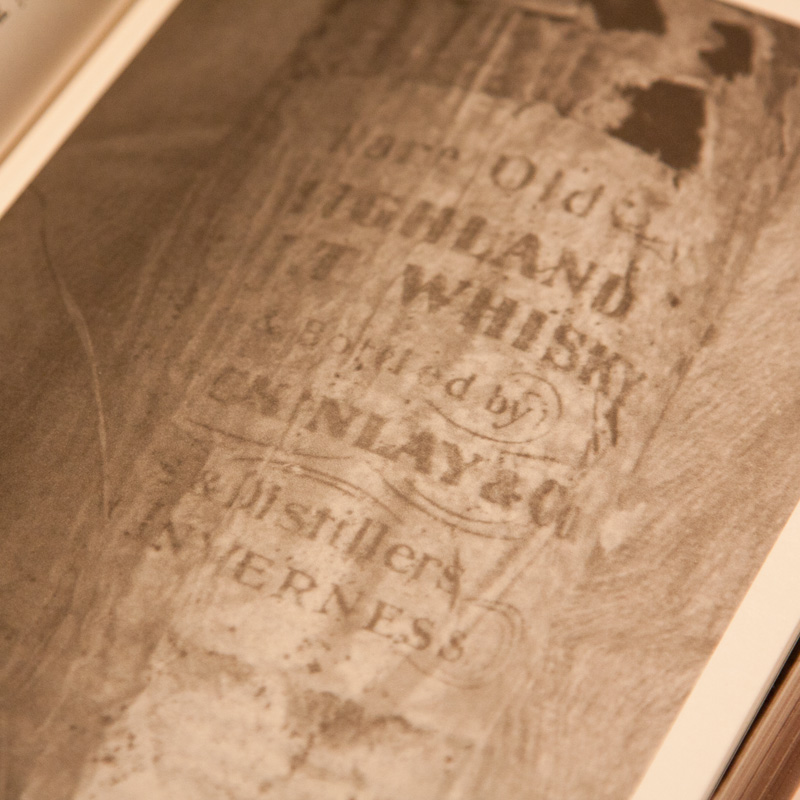 Rare Old
HIGHLAND
WHISKY
& Bottled by
NLAY & Co
& Distillers
INVERNESS